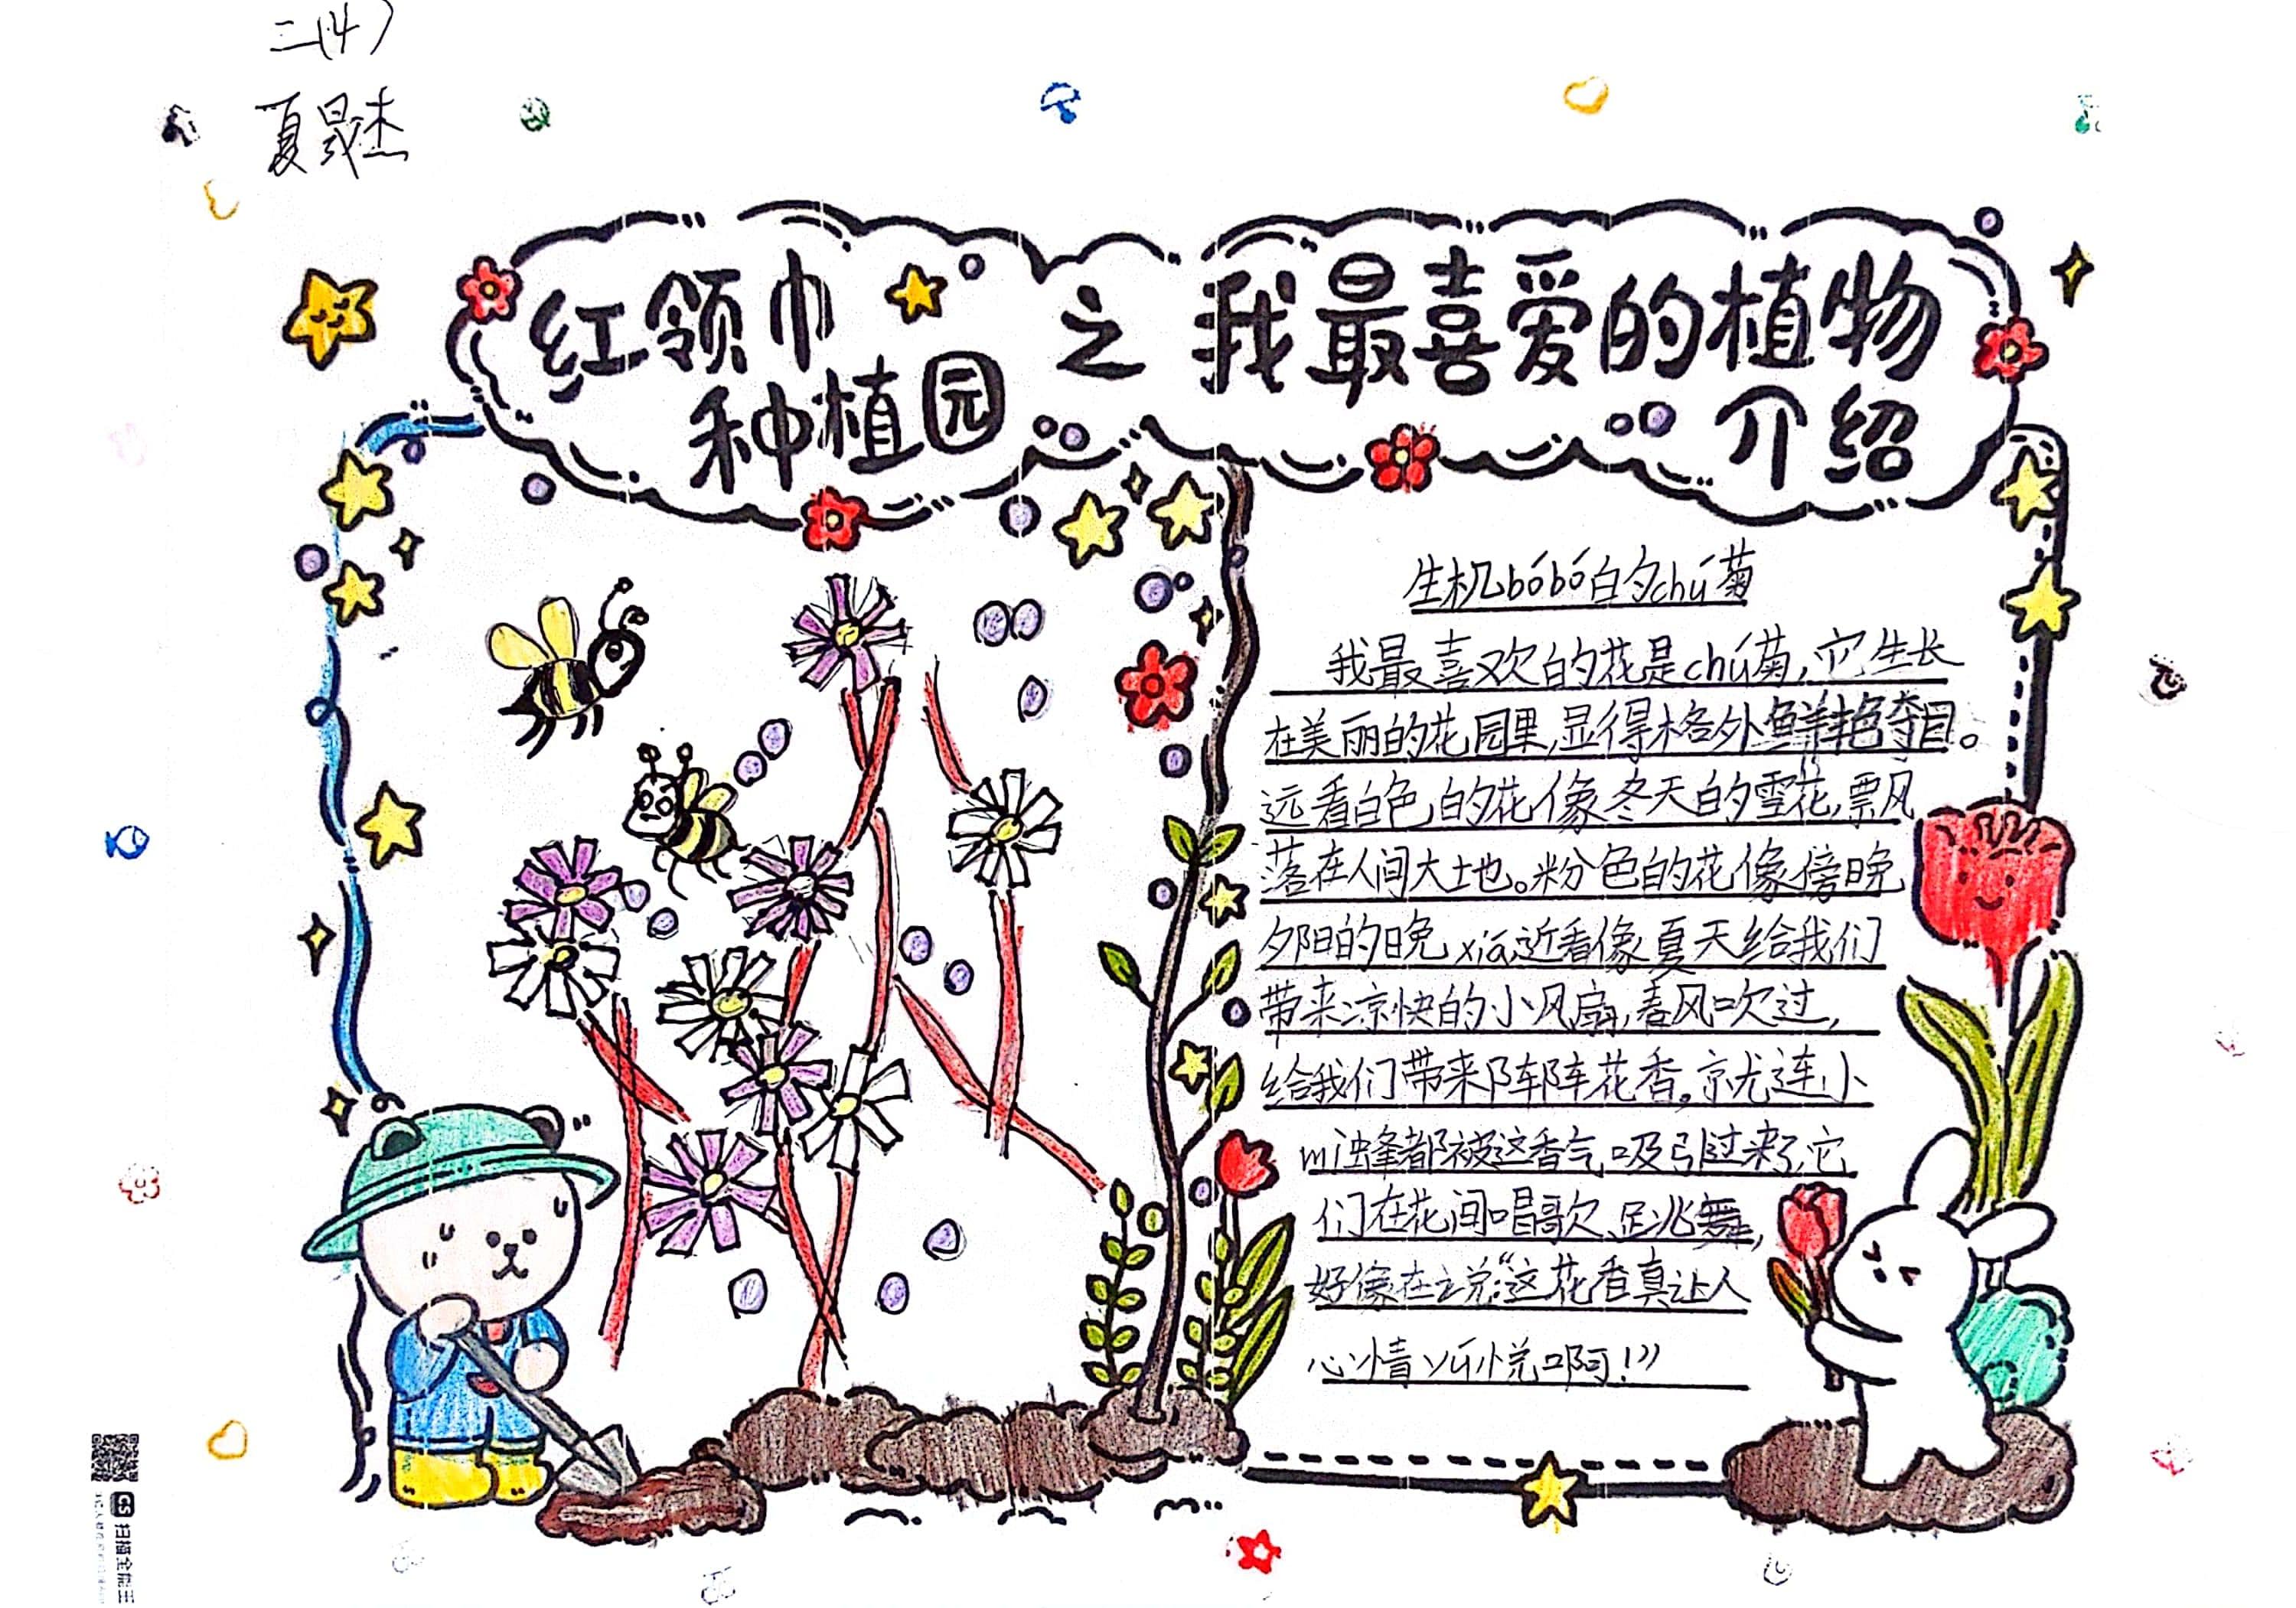 二(4)
夏晟杰
红领巾
种植园
之
我最喜爱的植物
介绍
生机bóbó的chú菊
我最喜欢的花是chú菊，它生长
在美丽的花园里，显得格外鲜艳夺目。
远看白色的花像冬天的雪花，票风
落在人间大地。粉色的花像傍晚
夕阳的晚xiá，近看像夏天给我们
带来凉快的小风扇，春风吹过，
给我们带来阵阵花香。就连小
mì蜂都被这香气吸引过来了，它
们在花间唱歌、跳舞，
好像在说：“这花香真让人
心情yú悦啊！”
CS 扫描全能王